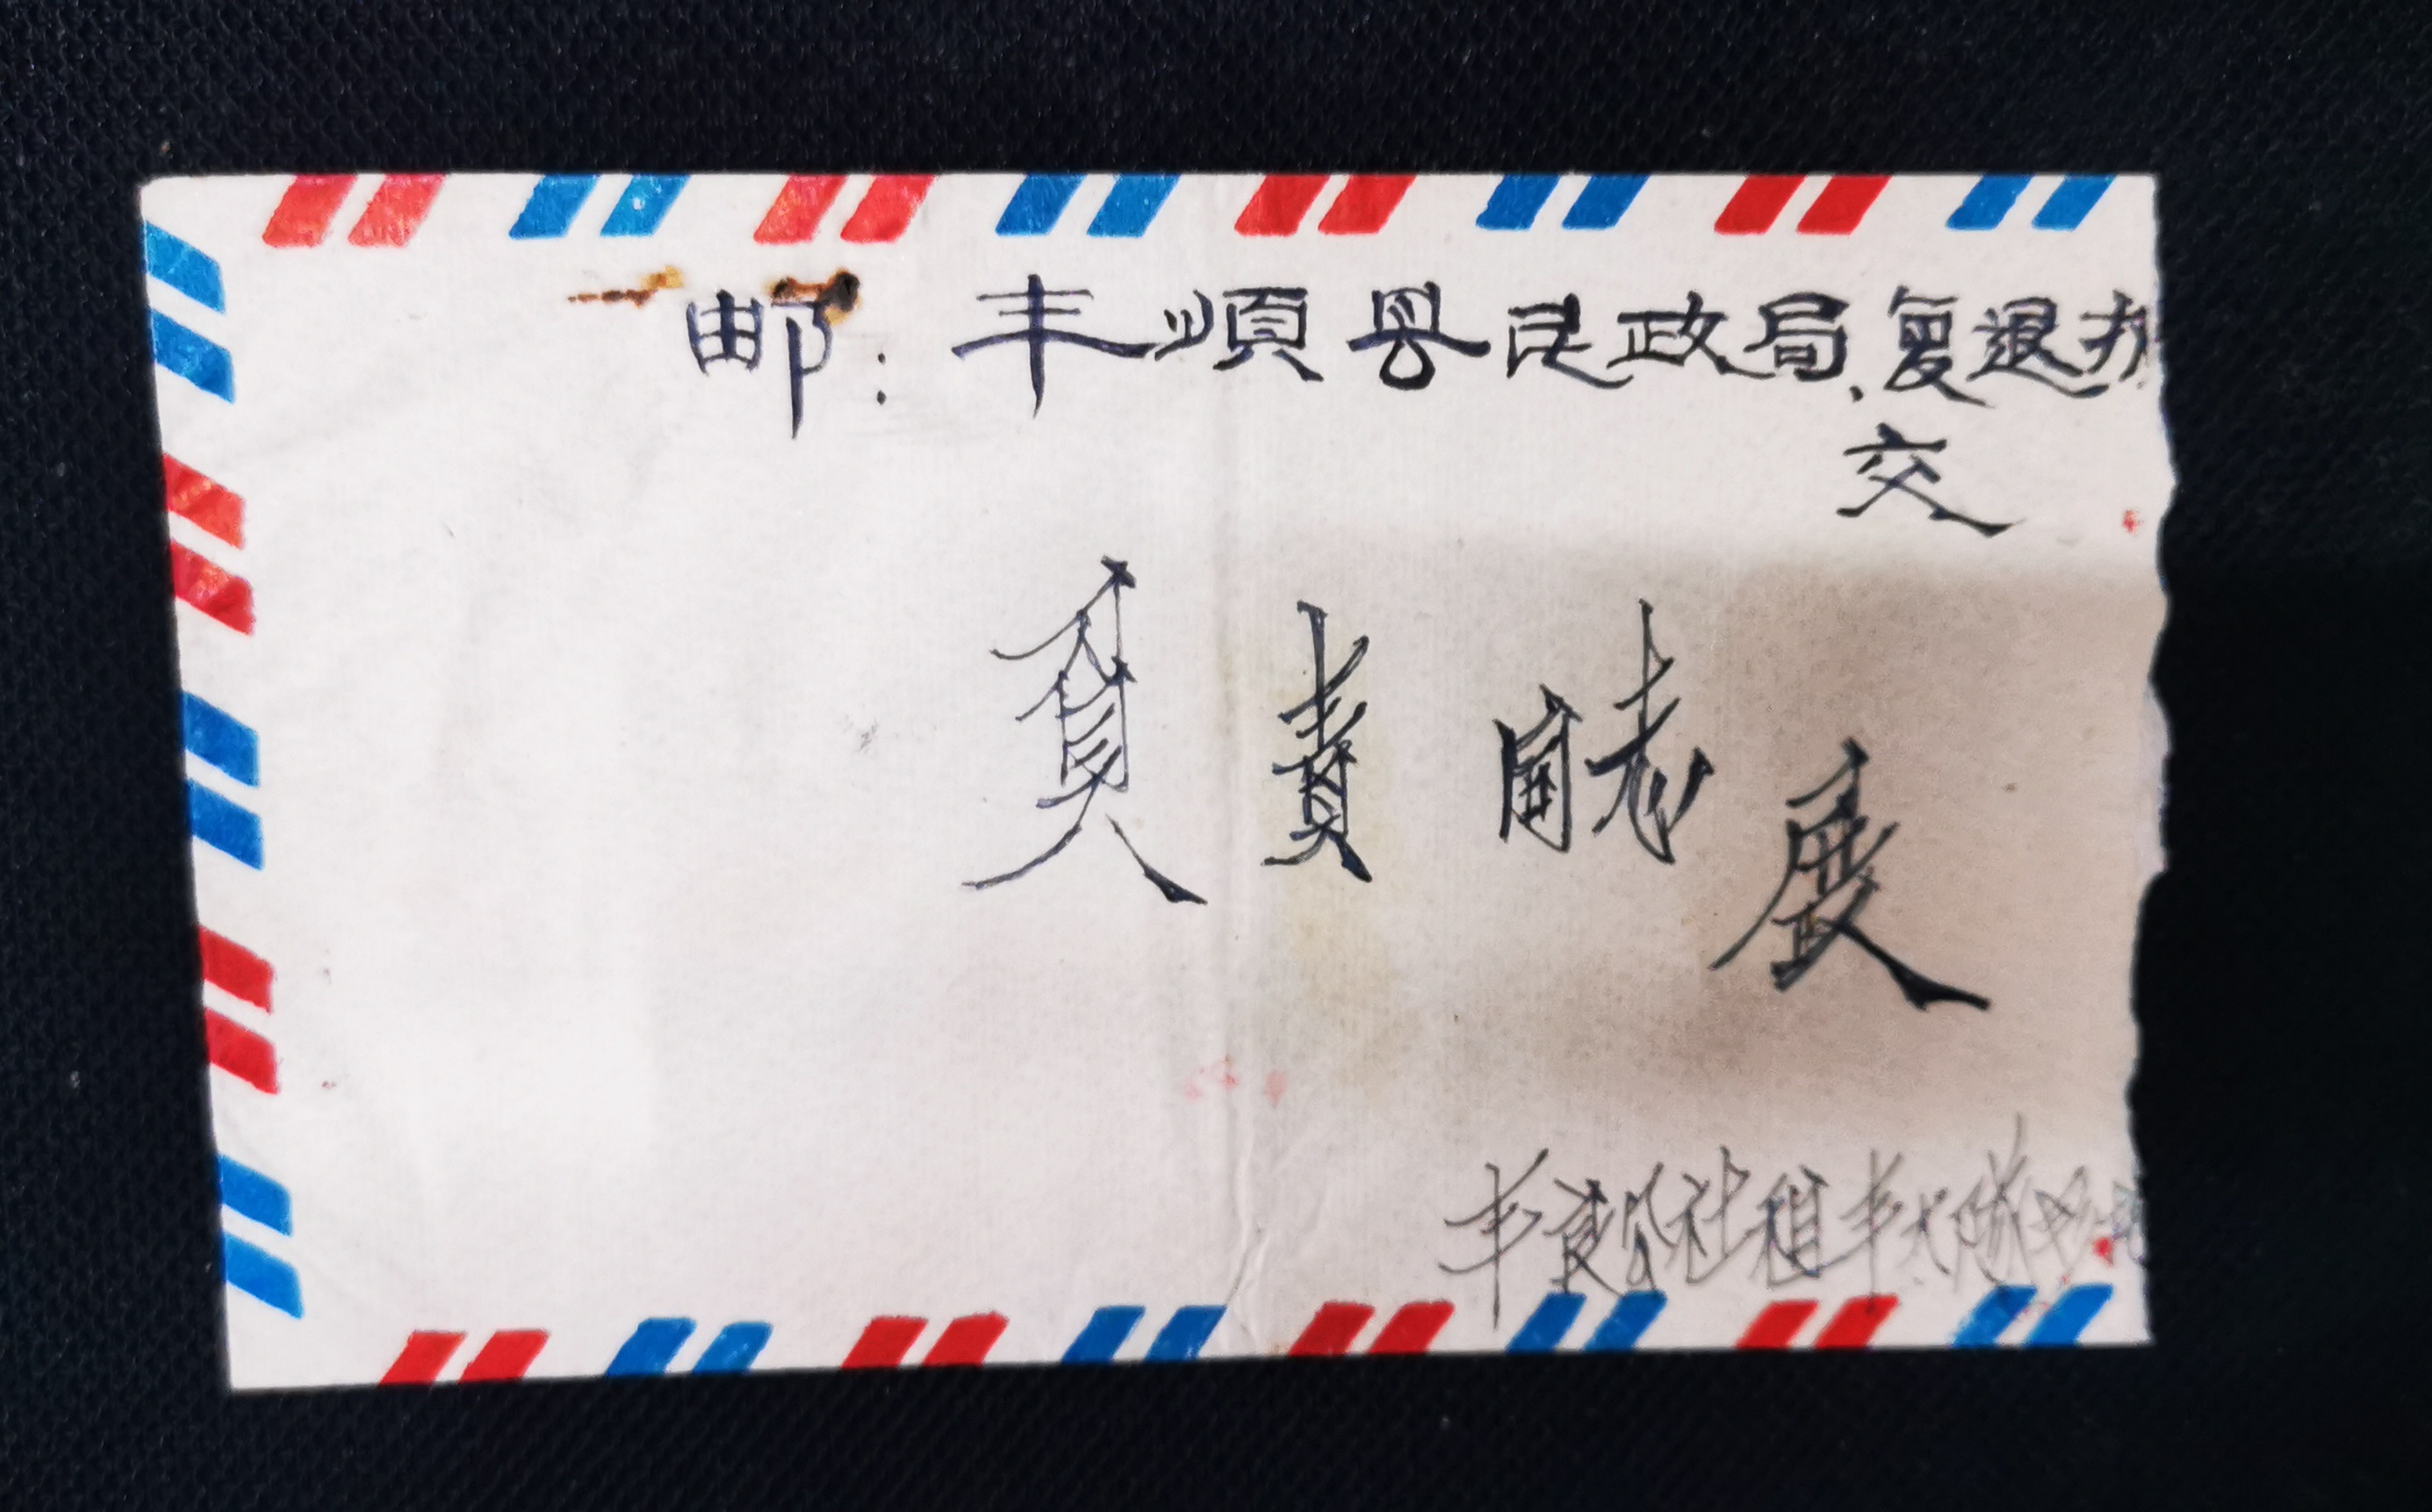 邮：丰順县民政局、复退办
交
負責同志
展
丰良公社祖丰大隊